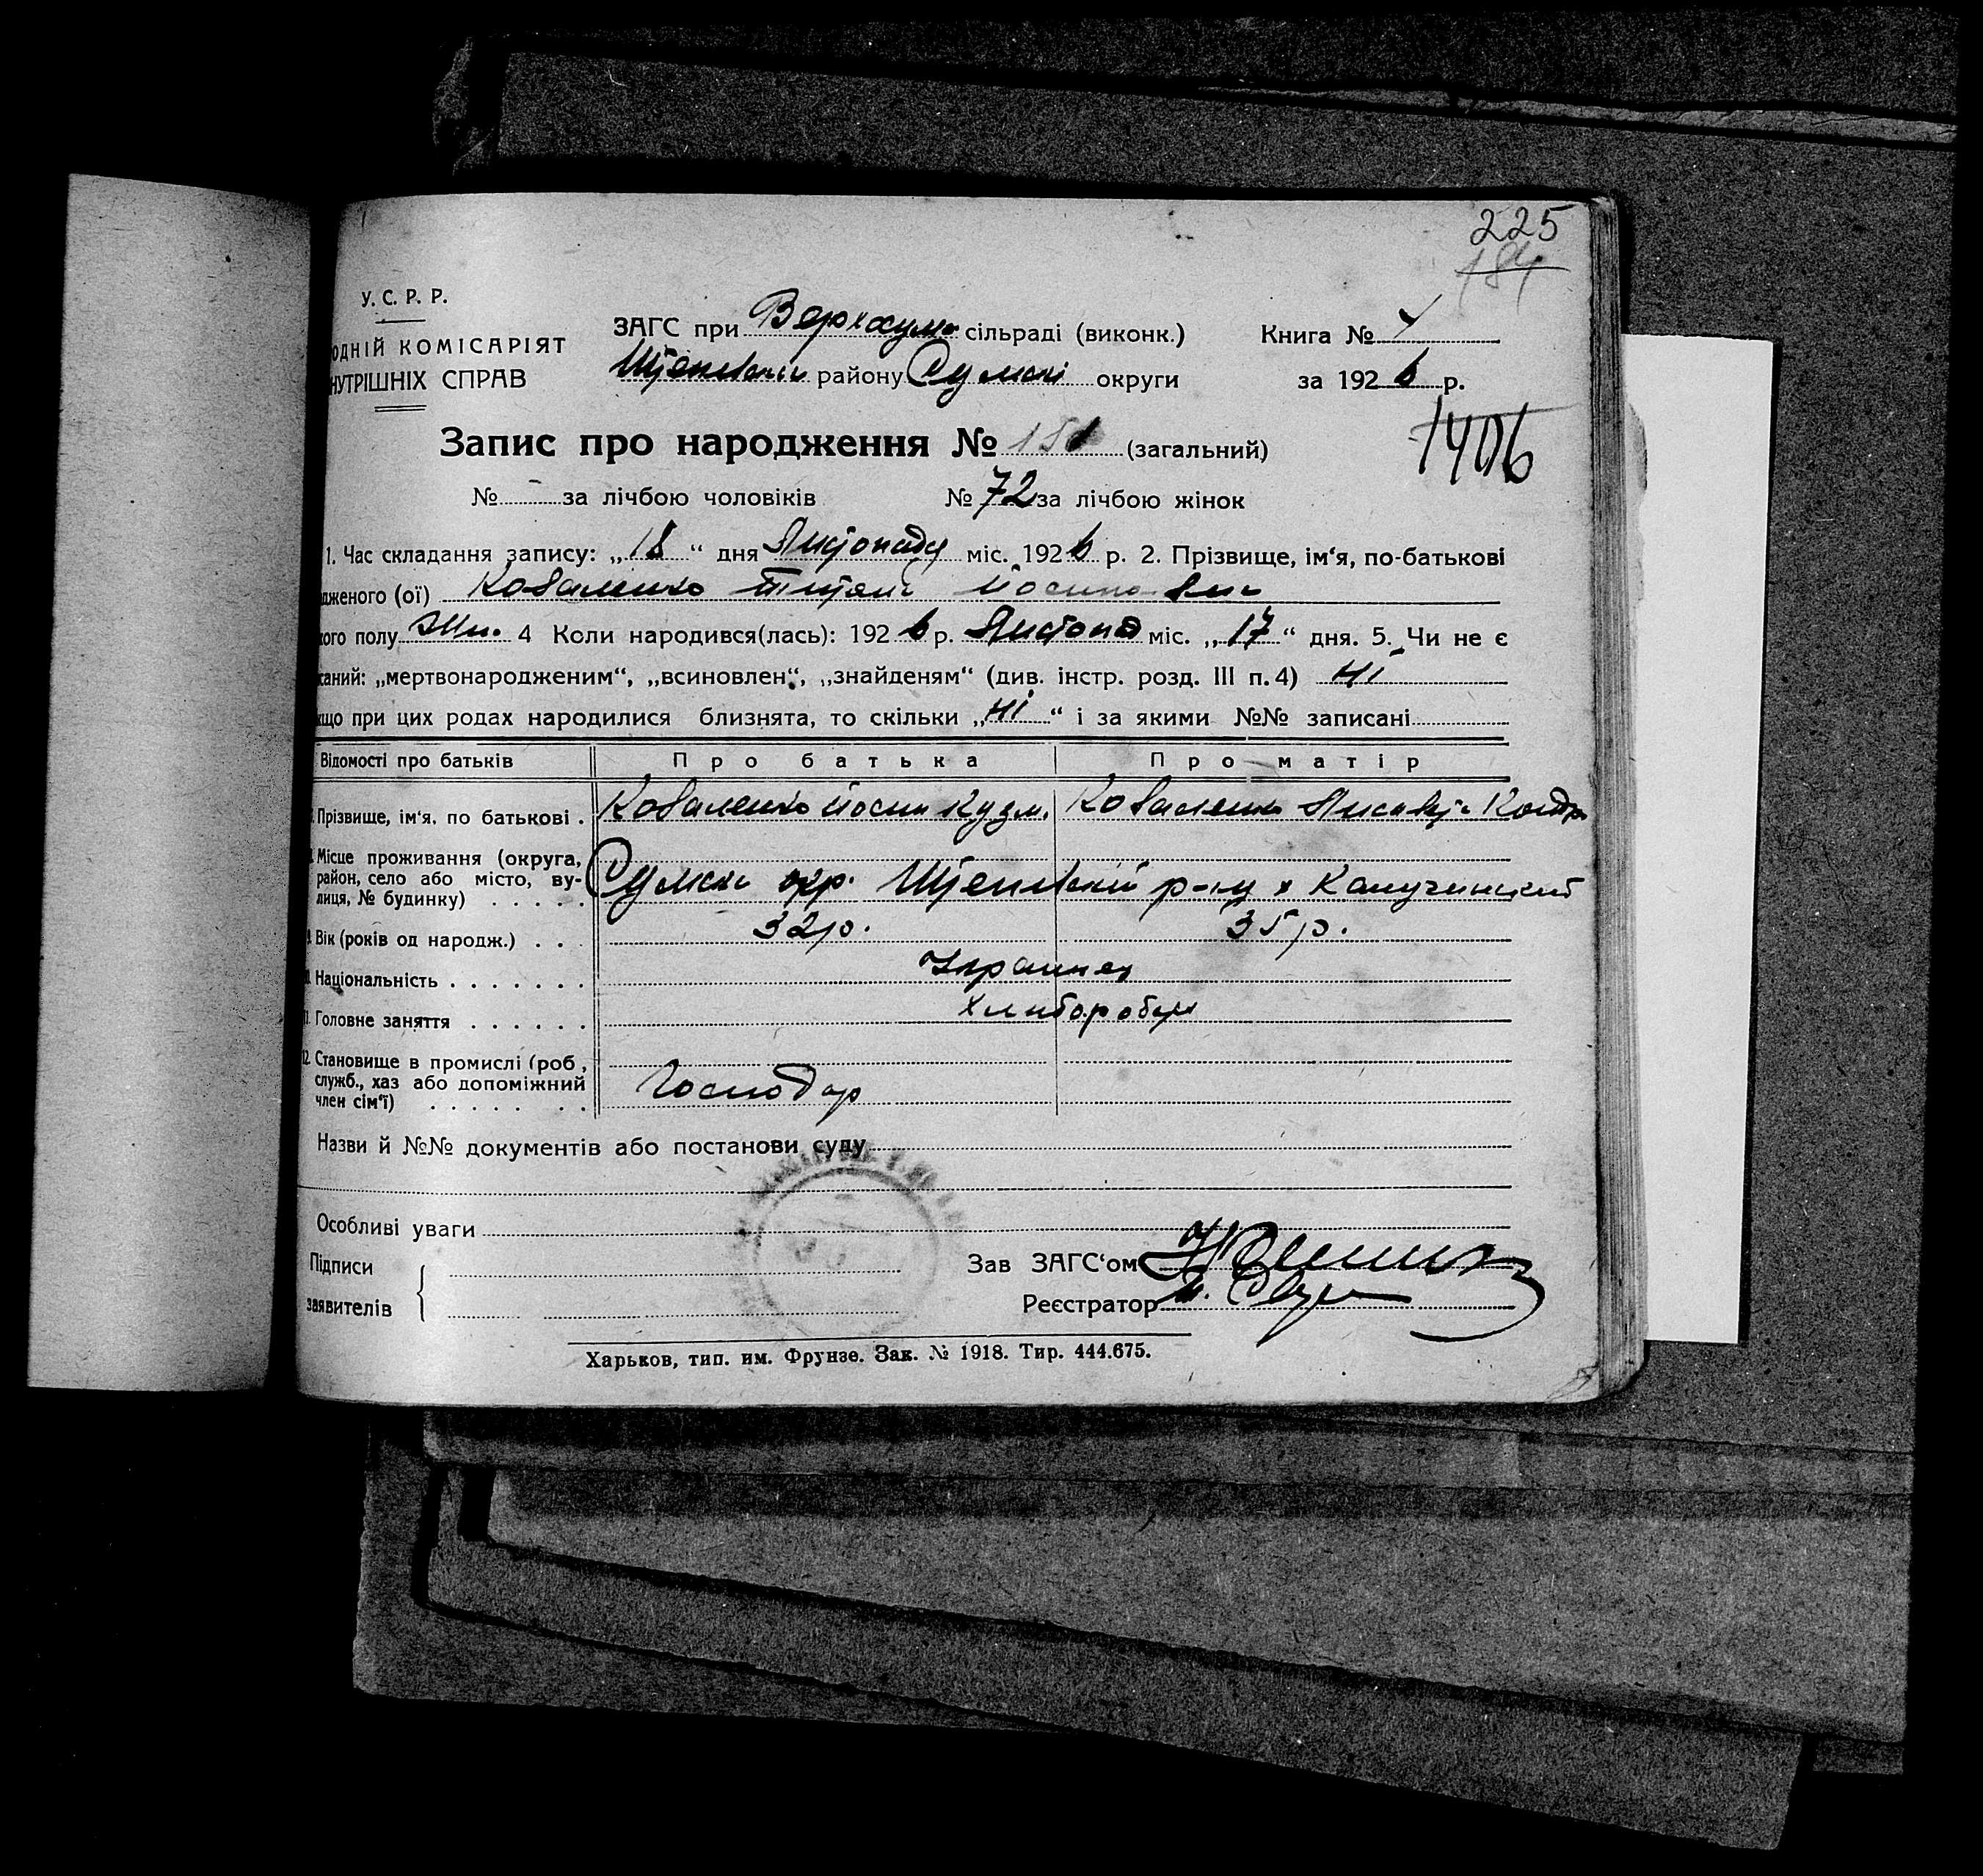 225
184
У. С. Р. Р.
ОДНІЙ КОМІСАРІЯТ
НУТРІШНІХ СПРАВ
ЗАГС при Верхосум. сільраді (виконк.)
Книга №
Штепівськ району Сумскі округи
за 1926 р.
Запис про народження № 181 (загальний)
1406
№ - за лічбою чоловіків № 72 за лічбою жінок
1. Час складання запису: „18“ дня Листопада міс. 1926 р. 2. Прізвище, ім‘я, по-батькові
дженого (ої) Коваленко Титяна Йосиповна
ого полу Жін. 4 Коли народився(лась): 1926 р. Листопад міс. „17“ дня. 5. Чи не є
саний: „мертвонародженим“, „всиновлен“, „знайденям“ (див. інстр. розд. III п. 4) Ні
кщо при цих родах народилися близнята, то скільки „Ні“ і за якими №№ записані
Відомості про батьків Про батька Про матір
Прізвище, ім‘я, по батькові . Коваленко Йосип Кузм. Коваленко Лисавета Кондр
Місце проживання (округа,
район, село або місто, ву-
лиця, № будинку) . . . . . Сумскі окр. Штепівський р-ну х
Вік (років од народж.) . . . 32 р. 35 р.
Національність . . . . . . . Украинец
Головне заняття . . . . . . Хлиборобы
12. Становище в промислі (роб,
служб., хаз або допоміжний
член сім‘ї) . . . . . . . Господар
Назви й №№ документів або постанови суду
Особливі уваги
Підписи
заявителів
Зав ЗАГС‘ом
Реєстратор
Харьков, тип. им. Фрунзе. Зак. № 1918. Тир. 444.675.